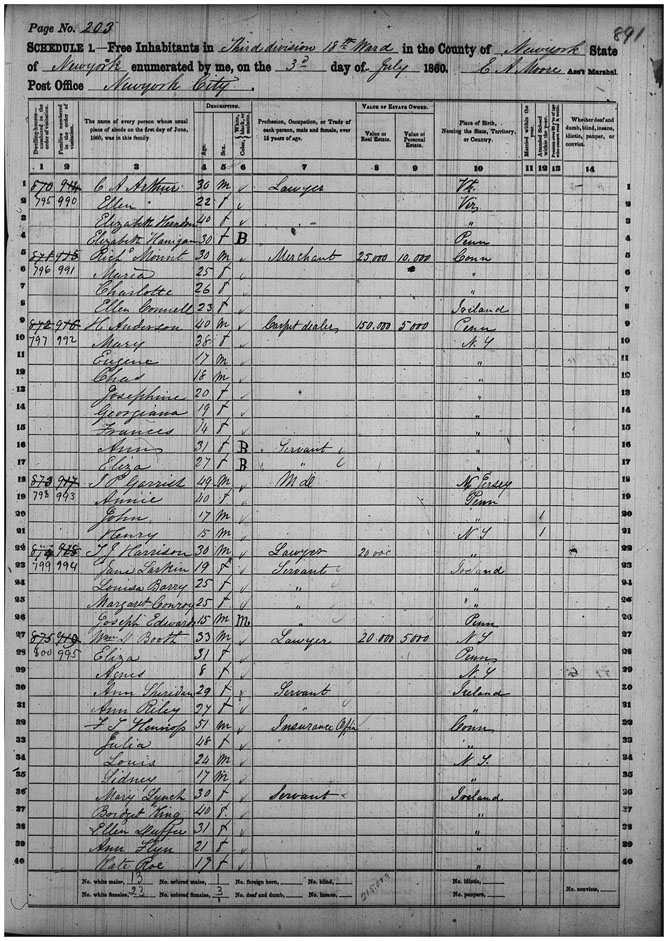 Page No. 203
891
SCHEDULE 1.—Free Inhabitants in Third division 18th Ward in the County of Newyork State
of Newyork enumerated by me, on the 3d day of July 1860. E A Moore Ass't Marshal.
Post Office Newyork City.
DESCRIPTION.
VALUE OF ESTATE OWNED.
Dwelling-houses—numbered in the order of visitation.
Families numbered in the order of visitation.
The name of every person whose usual place of abode on the first day of June, 1860, was in this family.
Age.
Sex.
Color, White, black, or mulatto.
Profession, Occupation, or Trade of each person, male and female, over 15 years of age.
Value of Real Estate.
Value of Personal Estate.
Place of Birth, Naming the State, Territory, or Country.
Married within the year.
Attended School within the year.
Whether deaf and dumb, blind, insane, idiotic, pauper, or convict.
1 2 3 4 5 6 7 8 9 10 11 12 13 14
1 870 914 C A Arthur 30 m Lawyer Vt 1
2 795 990 Ellen " 22 f Vir 2
3 Elizabeth Herndon 40 f " 3
4 Elizabeth Hanigan 30 f B Penn 4
5 871 915 Richd Mount 30 m Merchant 25.000 10.000 Conn 5
6 796 991 Maria 25 f " 6
7 Charlotte 26 f " 7
8 Ellen Connell 23 f Ireland 8
9 872 916 H. Anderson 40 m Carpet dealer 150.000 5000 Penn 9
10 797 992 Mary 38 f N.Y 10
11 Eugene 17 m " 11
12 Chas 18 m " 12
13 Josephine 20 f " 13
14 Georgiana 19 f " 14
15 Frances 14 f " 15
16 Ann 31 f B Servant " 16
17 Eliza 27 f B " " 17
18 873 917 49 m M D N Jersey 18
19 798 993 Annie 40 f Penn 19
20 John 17 m " 1 20
21 Henry 15 m N Y 1 21
22 874 918 T J Harrison 30 m Lawyer 20 000 " 22
23 799 994 Jane Larkin 19 f Servant Ireland 23
24 Louisa Barry 25 f " " 24
25 Margaret Conroy 25 f " " 25
26 Joseph Edwards 15 m M " Penn 26
27 875 919 Wm Booth 33 m Lawyer 20.000 5000 N Y 27
28 800 995 Eliza 31 f Penn 28
29 Agnes 8 f N.Y 29
30 Ann Sheridan 29 f Servant Ireland 30
31 Ann Riley 27 f " " 31
32 51 m Insurance Conn 32
33 Julia 48 f " 33
34 Louis 24 m N Y. 34
35 Sidney 17 m " 35
36 Mary Lynch 30 f Servant Ireland 36
37 Bridget King 40 f " 37
38 Ellen 31 f " 38
39 Ann Flyn 21 f " 39
40 Kate Roe 19 f " 40
No. white males, 13 No. colored males, 1 No. foreign born, No. blind, No. idiotic, No. convicts,
No. white females, 23 No. colored females, 3 No. deaf and dumb, No. insane, No. paupers,